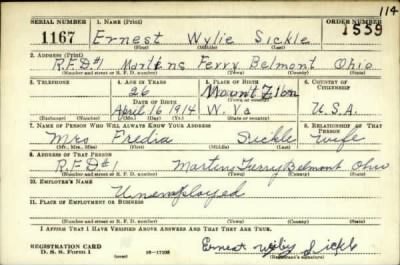 114
SERIAL NUMBER 1. NAME (Print) ORDER NUMBER
1167 Ernest Wylie Sickle 1559
(First) (Middle) (Last)
2. ADDRESS (Print)
R.F.D#1 Martins Ferry Belmont Ohio
(Number and street or R. F. D. number) (Town) (County) (State)
3. TELEPHONE 4. AGE IN YEARS 5. PLACE OF BIRTH 6. COUNTRY OF CITIZENSHIP
26 Mount Zion
DATE OF BIRTH (Town or county)
April 16 1914 W. Va U.S.A.
(Exchange) (Number) (Mo.) (Day) (Yr.) (State or country)
7. NAME OF PERSON WHO WILL ALWAYS KNOW YOUR ADDRESS 8. RELATIONSHIP OF THAT PERSON
Mrs Fredia Sickle wife
(Mr., Mrs., Miss) (First) (Middle) (Last)
9. ADDRESS OF THAT PERSON
R.F.D#1 Martins Ferry Belmont Ohio
(Number and street or R. F. D. number) (Town) (County) (State)
10. EMPLOYER'S NAME
Unemployed
11. PLACE OF EMPLOYMENT OR BUSINESS
(Number and street or R. F. D. number) (Town) (County) (State)
I AFFIRM THAT I HAVE VERIFIED ABOVE ANSWERS AND THAT THEY ARE TRUE.
REGISTRATION CARD
D. S. S. Form 1 (over) Ernest Sickle
(Registrant's signature)